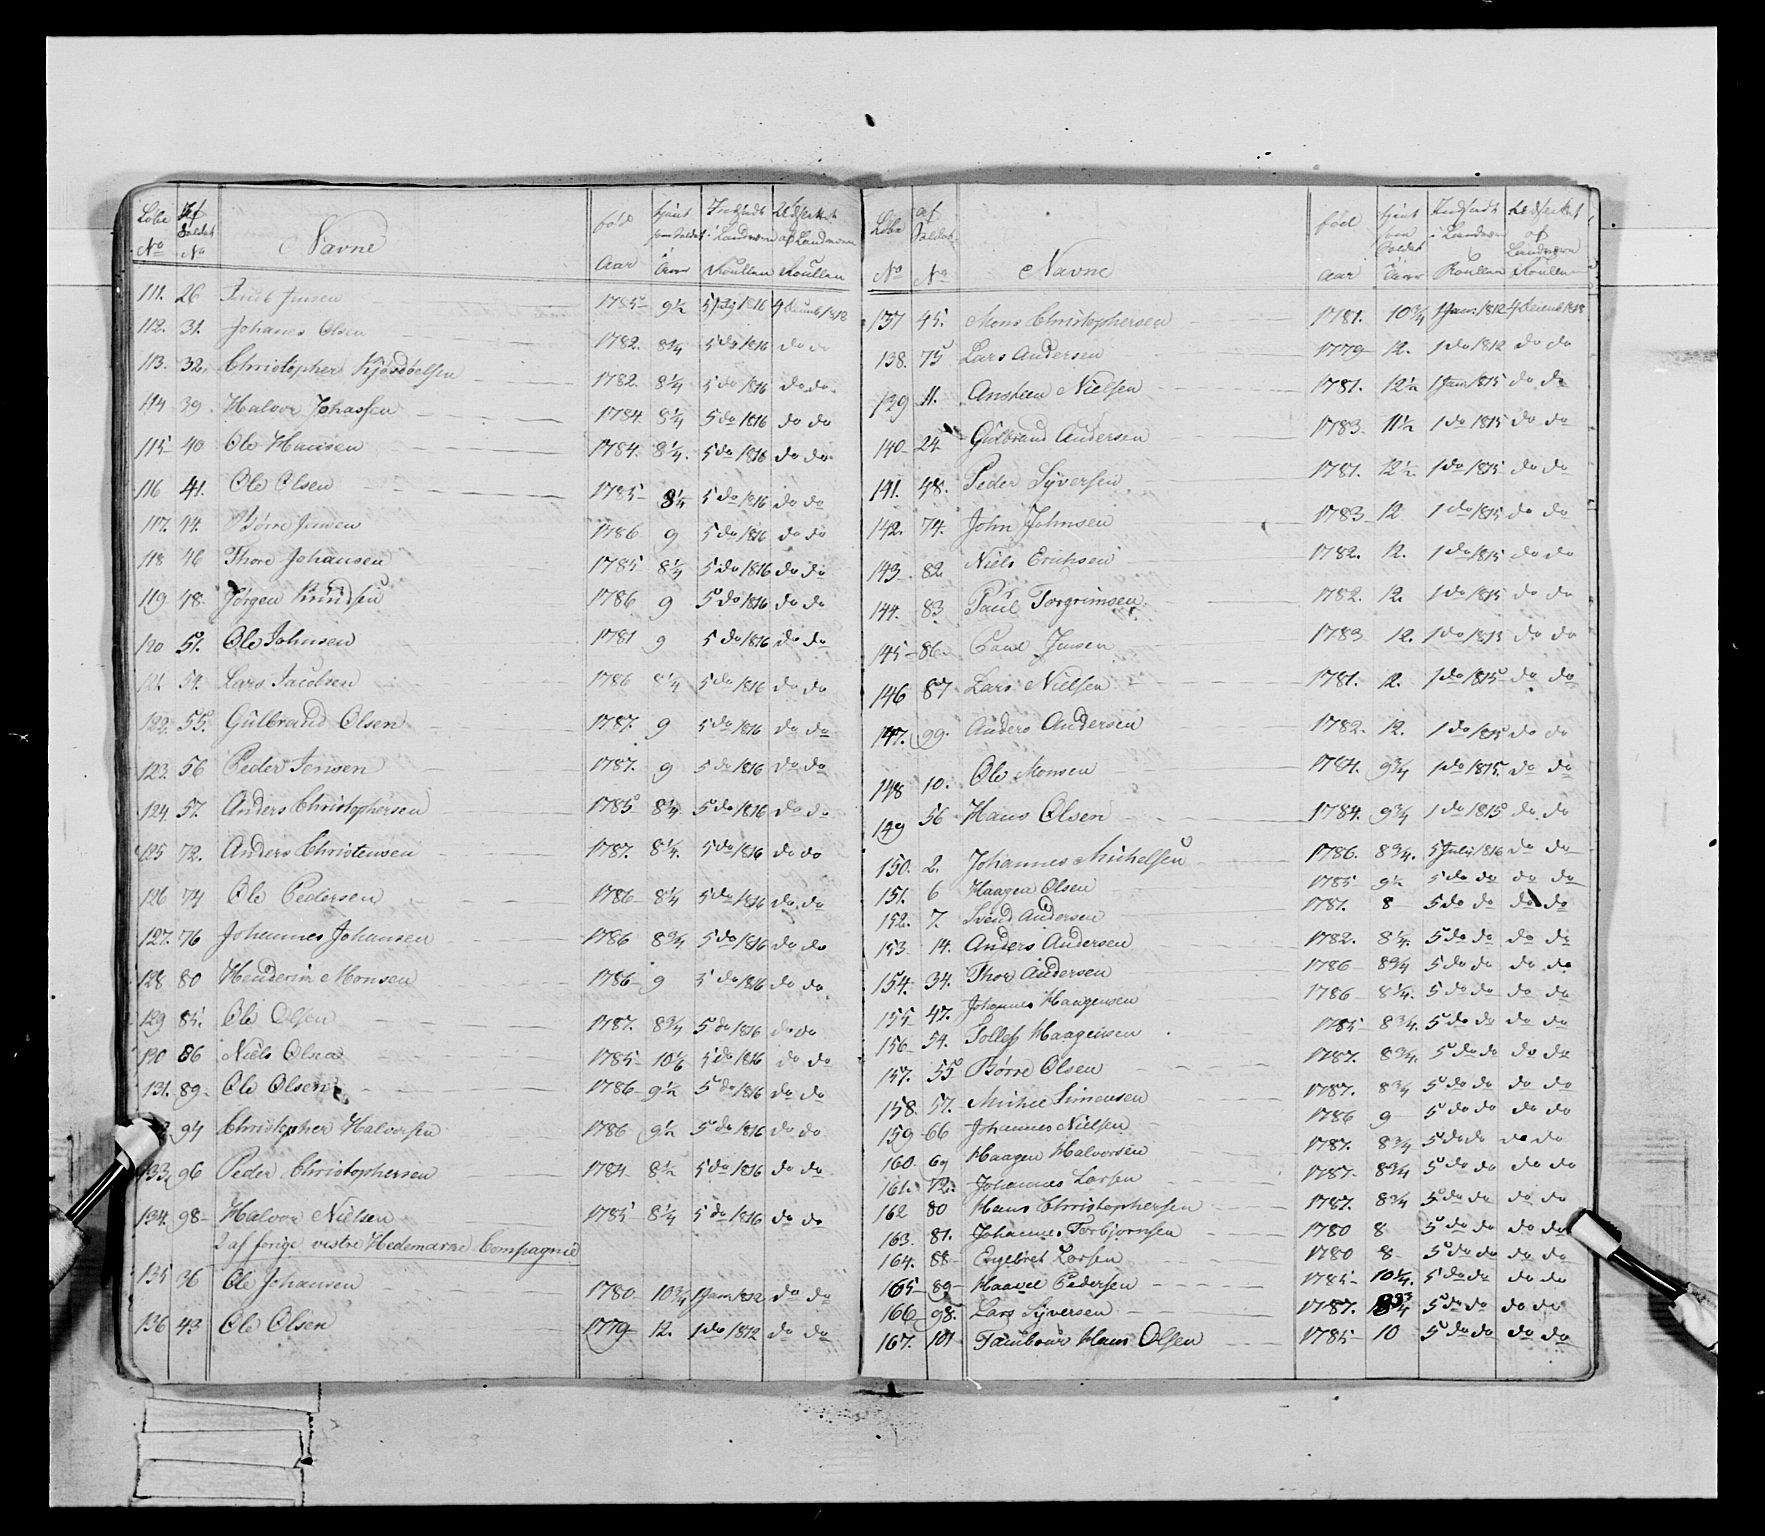 Løbe No | Af Soldat No | Navne | fød Aar | tjent som Soldat Aar | Indsadt i Landværn Roullen | Udslettet af Landværn Roullen
111. 26 Jensen 1785 9½ 5 July 1816 4 Decemb 1818
112. 31. Johanes Olsen 1782. 8¾ 5 do 1816 do do
113. 32. Christopher 1782. 8¼ 5 do 1816 do do
114 39. Halvor Johassen 1784 8¼ 5 do 1816 do do
115 40 Ole Hansen 1784. 8¼. 5 do 1816 do do
116 41. Ole Olsen 1785 8¼ 5 do 1816 do do
117. 44. Børre Jensen 1786 9 5 do 1816 do do
118 46 Thore Johansen 1785 8¼ 5 do 1816 do do
119 48. Jørgen Knudsen 1786 9 5 do 1816 do do
120 51. Ole Johnsen 1781 9 5 do 1816 do do
121. 54. Lars Jacobsen 1786 8¼ 5 do 1816 do do
122. 55. Gulbrand Olsen 1787. 9 5 do 1816 do do
123. 56 Peder Jensen 1787. 9 5 do 1816 do do
124. 57. Anders Christophersen 1785 8¼ 5 do 1816 do do
125 72. Anders Christensen 1787. 8¼. 5 do 1816 do do
126 74 Ole Pedersen 1786 8¼ 5 do 1816 do do
127. 76 Johannes Johansen 1786 8¾ 5 do 1816 do do
128 80 Henderich Monsen 1786 9 5 do 1816 do do
129 85. Ole Olsen 1787. 8¾ 5 do 1816 do do
130 86 Niels Olsen 1785 10½ 5 do 1816 do do
131. 89. Ole Olsen 1786 9½ 5 do 1816 do do
94 Christopher Halvorsen 1786 9½ 5 do 1816 do do
133. 96 Peder Christophersen 1784 8½ 5 do 1816 do do
134. 98 Halvor Nielsen 1785 8¼ 5 do 1816 do do
2 af forige vestre Hedemarke Compagnie
135 36 Ole Johansen 1780 10¾ 1 Janr 1812 do do
136 43 Ole Olsen 1779 12. 1 do 1812 do do
Løbe No | af Soldat No | Navne | fød aar | tjent som Soldat i Aar | Indsadt i Landværn Roullen | Udslettet af Landværn Roullen
137 45. Mons Christophersen 1781. 10¾ 1 Janr 1812 4 Decemb 1818
138. 75 Lars Andersen 1779 12. 1 do 1812 do do
139 11. Ansteen Nielsen 1781. 12½ 1 Janr 1815 do do
140 24 Gulbrand Andersen 1783. 11½ 1 do 1815 do do
141. 48. Peder Syversen 1781. 12½ 1 do 1815 do do
142. 74. John Johnsen 1783 12 1 do 1815 do do
143 82 Niels Erichsen 1782. 12. 1 do 1815 do do
144. 83 Paul Torgrimsen 1782. 12. 1 do 1815 do do
145 86. Paul Jensen 1783 12. 1 do 1815 do do
146 87. Lars Nielsen 1781. 12. 1 do 1815 do do
147. 99. Anders Andersen 1782. 12. 1 do 1815 do do
148 10. Ole Monsen 1784. 9¾ 1 do 1815. do do
149 56 Hans Olsen 1784. 9¾ 1 do 1815 do do
150. 2. Johannes Michelsen 1786. 8¾. 5 July 1816 do do
151. 6 Haagen Olsen 1785 9½ 5 do do do do
152. 7. Svend Andersen 1781. 8 5 do do do do
153 14. Anders Andersen 1782. 8¼. 5 do do do do
154. 34. Thor Andersen 1786 8¾ 5 do do do do
155 47. Johannes Haagensen 1786 8¼. 5 do do do do
156 54. Tollef Haagensen 1785 8¾. 5 do do do do
157. 55 Børre Olsen 1787. 8¾. 5 do do do do
158. 57. Michel Simensen 1787. 8¾ 5 do do do do
159 66 Johannes Nielsen 1786 9 5 do do do do
160. 69 Haagen Halvorsen 1787. 8¾ 5 do do do do
161. 72. Johannes Larsen 1787. 8¾ 5 do do do do
162 80 Hans Christophersen 1787. 8¾ 5 do do do do
163. 81. Johannes Torbjornsen 1780 8 5 do do do do
164. 88 Engebret Larsen 1780 8 5 do do do do
165 89 Haavel Pedersen 1785 10¼. 5 do do do do
166 98. Lars Syversen 1787. 8¾ 5 do do do do
167. 101 Tambour Hans Olsen 1785 10 5 do do do do